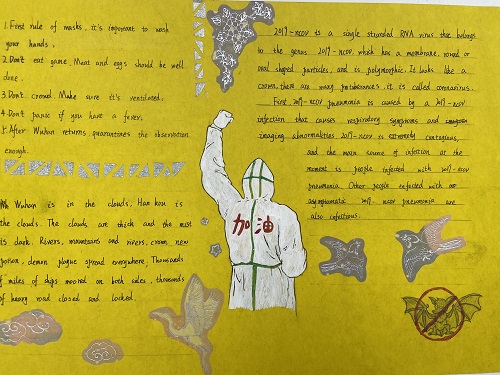 1. First rule of masks, it's important to wash
your hands,
2. Don't eat game. Meat and eggs should be well
done.
3. Don't crowd. Make sure it's ventilated.
4. Don't panic if you have a fever.
5. After Wuhan returns, quarantines the observation
enough.
Wuhan is in the clouds, Han kou is
the clouds. The clouds are thick and the mist
is dark. Rivers, mountains and rivers, crown, new
poison, demon plague spread everywhere. Thousands
of miles of ships moored on both sides, thousands
of heavy road closed and locked.
2019-nCOV is a single stranded RNA virus that belongs
to the genus. 2019-nCOV, which has a membrane, round or
oval shaped particles, and is polymorphic. It looks like a
crown, there are many protuberances, it is called coronavirus.
First, 2019-nCOV pneumonia is caused by a 2019-nCOV
infection that causes respiratory symptoms and
imaging abnormalities. 2019-nCOV is extremely contagious,
and the main source of infection at the
moment is people infected with 2019-nCOV
pneumonia. Other people infected with
asymptomatic 2019-nCOV pneumonia are
also infectious.
加油